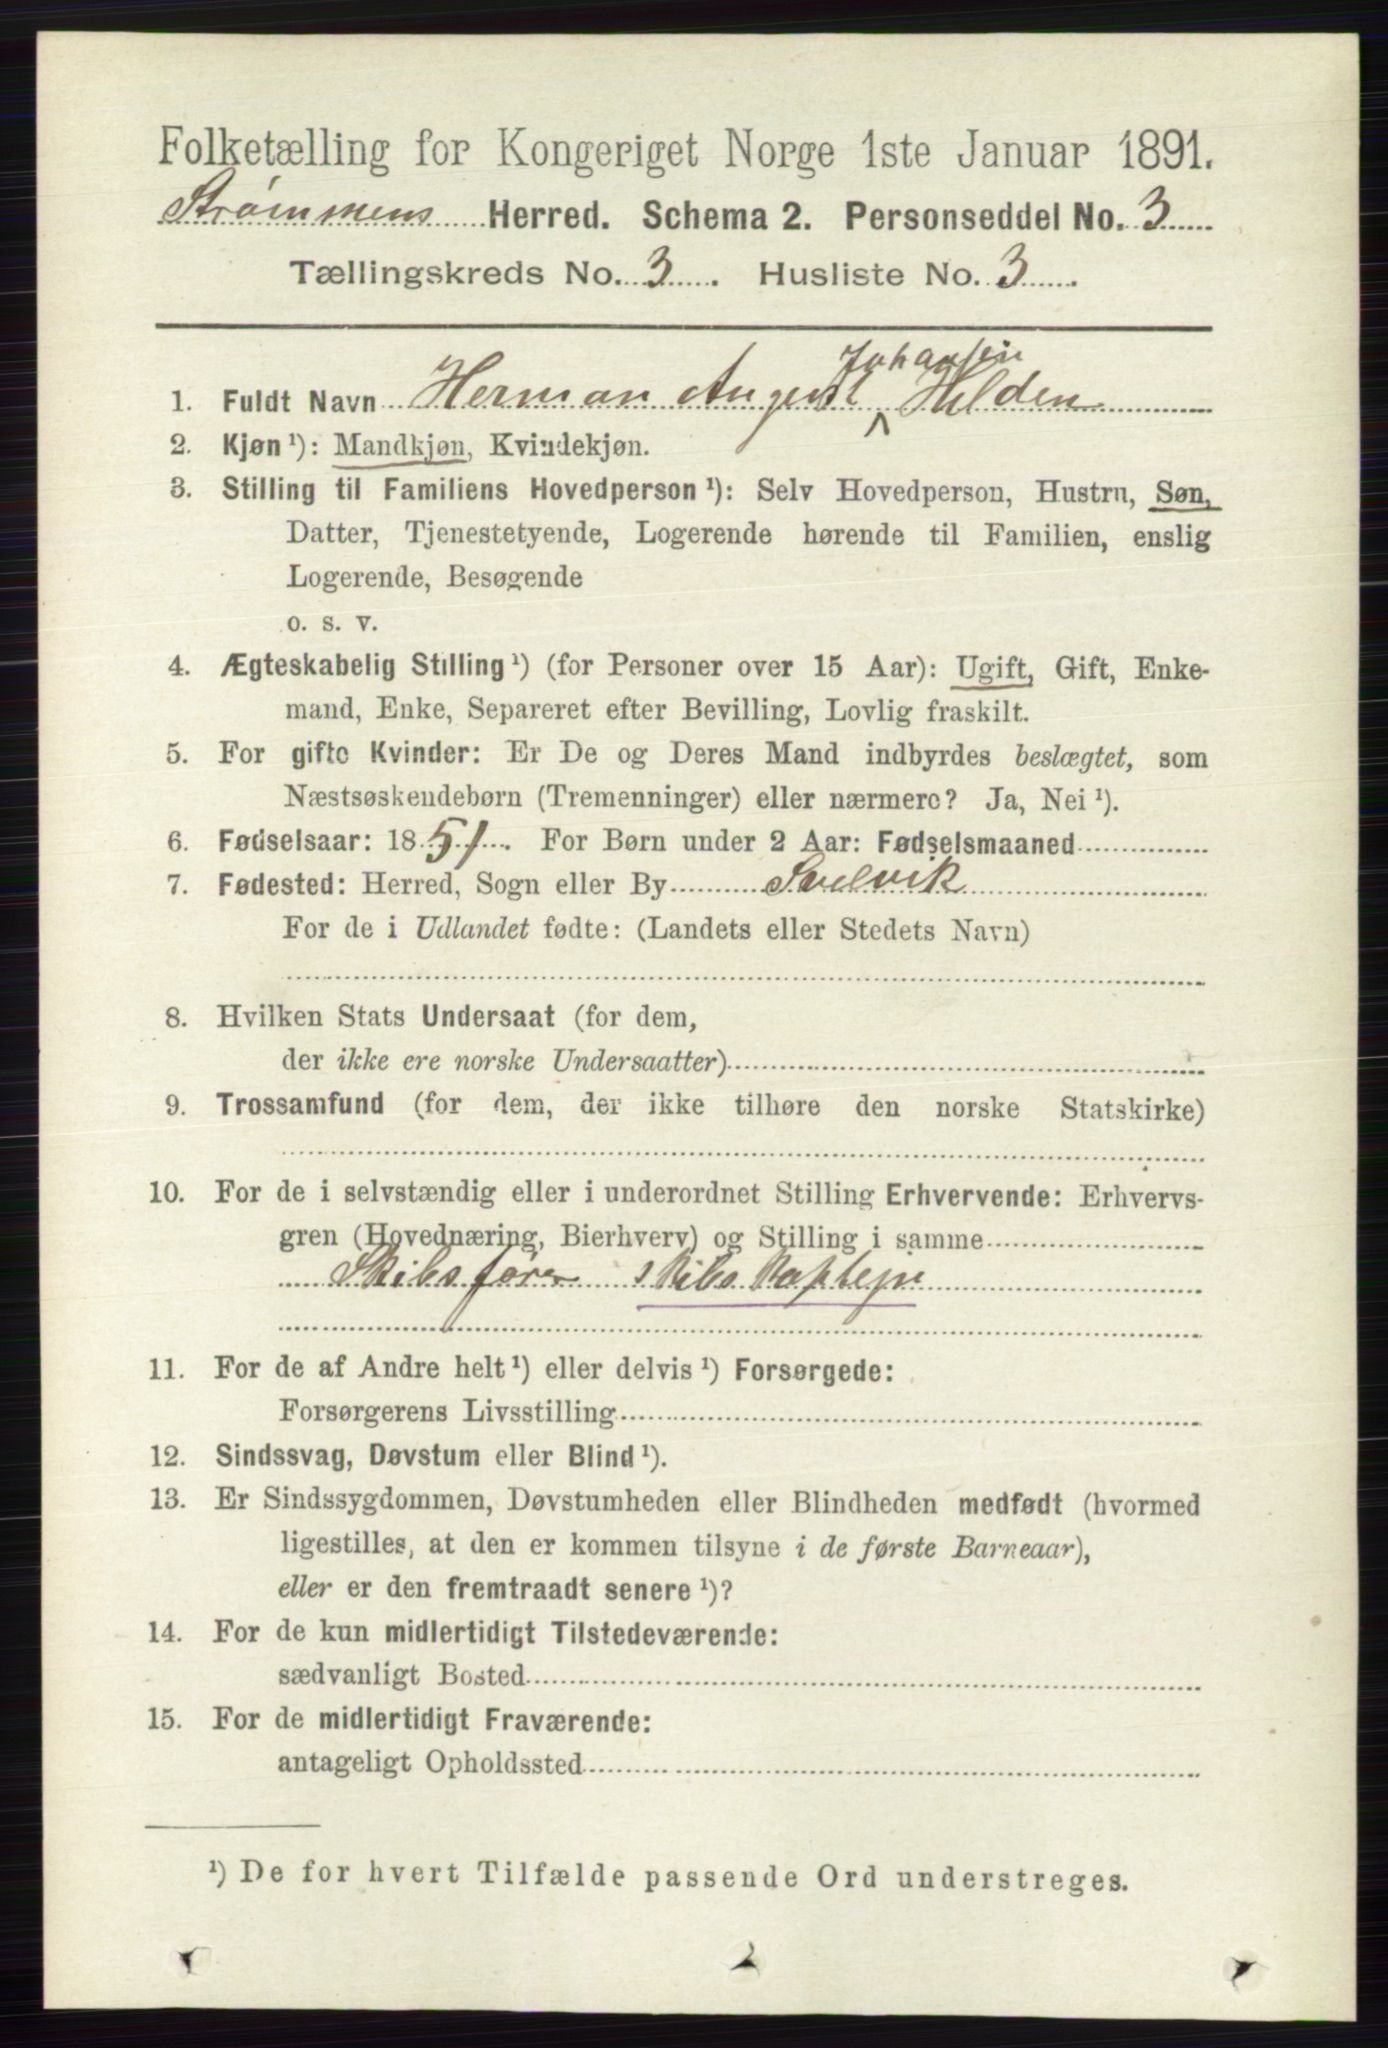 Folketælling for Kongeriget Norge 1ste Januar 1891.
Strømmens Herred. Schema 2. Personseddel No. 3
Tællingskreds No. 3. Husliste No. 3.
Johansen
1. Fuldt Navn Herman August ^ Hilden
2. Kjøn ¹): Mandkjøn, Kvindekjøn.
3. Stilling til Familiens Hovedperson ¹): Selv Hovedperson, Hustru, Søn,
Datter, Tjenestetyende, Logerende hørende til Familien, enslig
Logerende, Besøgende
o. s. v.
4. Ægteskabelig Stilling ¹) (for Personer over 15 Aar): Ugift, Gift, Enke-
mand, Enke, Separeret efter Bevilling, Lovlig fraskilt.
5. For gifte Kvinder: Er De og Deres Mand indbyrdes beslægtet, som
Næstsøskendebørn (Tremenninger) eller nærmere? Ja, Nei ¹).
6. Fødselsaar: 1851. For Børn under 2 Aar: Fødselsmaaned
7. Fødested: Herred, Sogn eller By Svelvik
For de i Udlandet fødte: (Landets eller Stedets Navn)
8. Hvilken Stats Undersaat (for dem,
der ikke ere norske Undersaatter)
9. Trossamfund (for dem, der ikke tilhøre den norske Statskirke)
10. For de i selvstændig eller i underordnet Stilling Erhvervende: Erhvervs-
gren (Hovednæring, Bierhverv) og Stilling i samme
Skibsfører Skibskaptejn
11. For de af Andre helt ¹) eller delvis ¹) Forsørgede:
Forsørgerens Livsstilling
12. Sindssvag, Døvstum eller Blind ¹).
13. Er Sindssygdommen, Døvstumheden eller Blindheden medfødt (hvormed
ligestilles, at den er kommen tilsyne i de første Barneaar),
eller er den fremtraadt senere ¹)?
14. For de kun midlertidigt Tilstedeværende:
sædvanligt Bosted
15. For de midlertidigt Fraværende:
antageligt Opholdssted
¹) De for hvert Tilfælde passende Ord understreges.